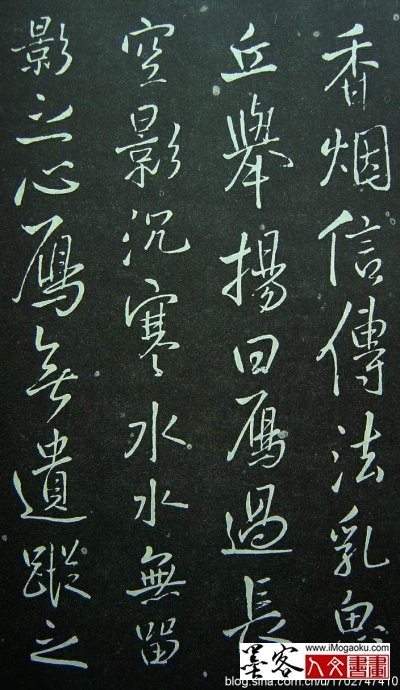 香烟信傳法乳
丘舉揚曰鴈過長
空影沉寒水水無留
影之心鴈無遺蹤之
www.iMogaoku.com
墨客
blog.sina.com.cn/u/1702747410